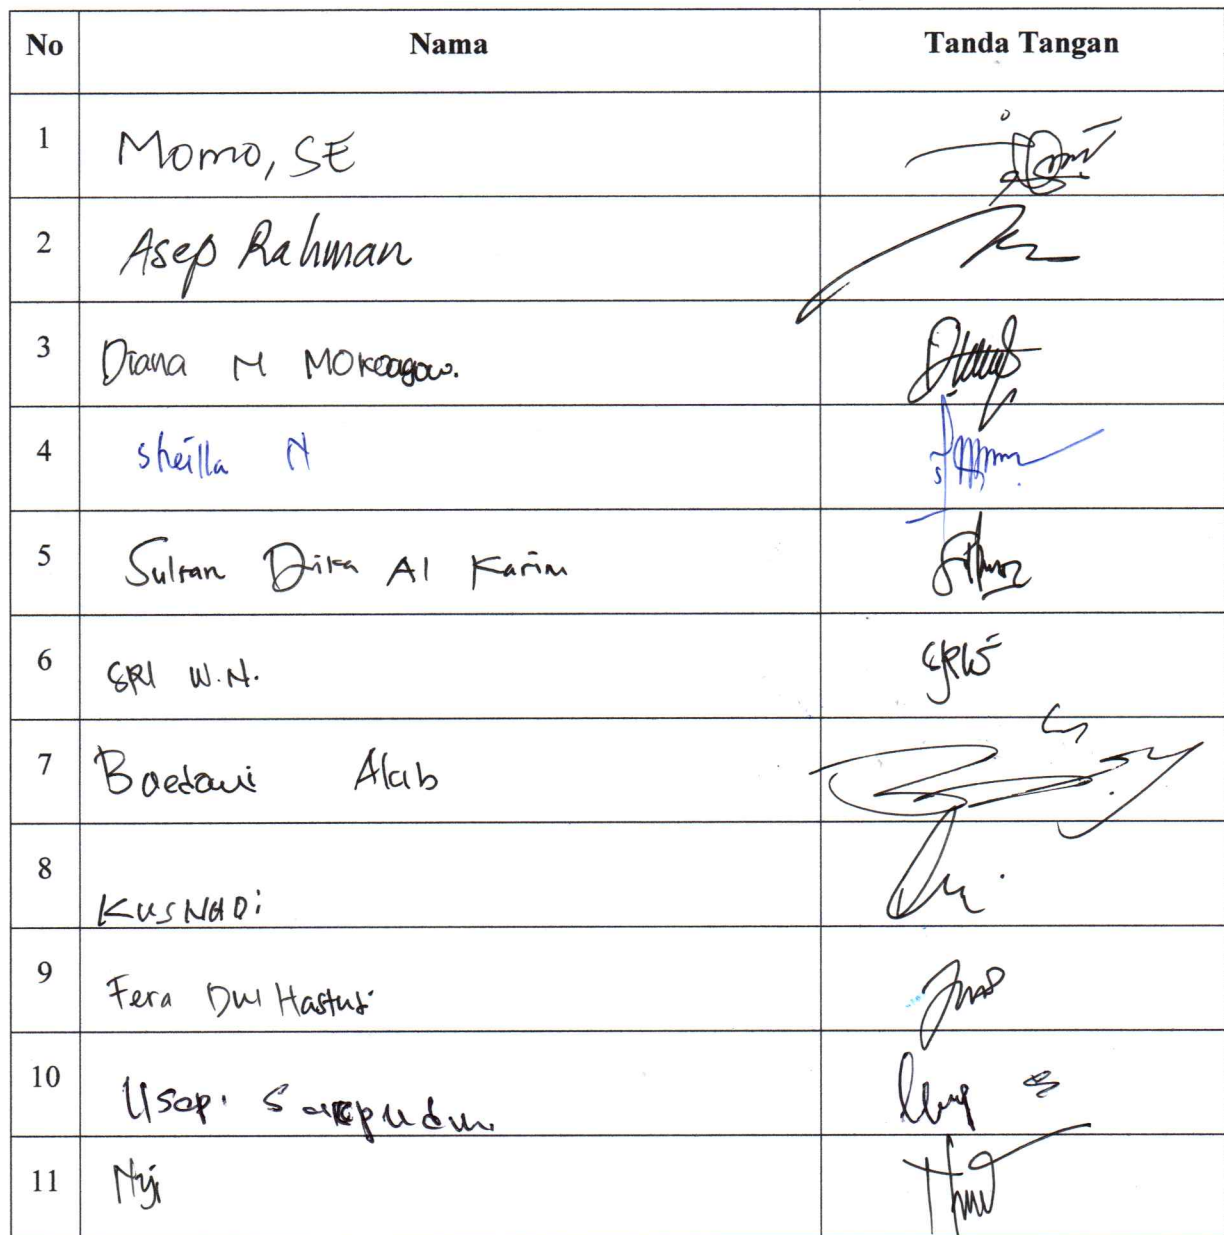 No Nama Tanda Tangan
1 Momo, SE
2 Asep Rahman
3 Diana M Mokoagow.
4 Sheilla N
5 Sultan Dika Al Karim
6 SRI W.N.
7 Boedani Alab
8 KUSNADi
9 Fera Dwi Hastuti
10 Usep.
11